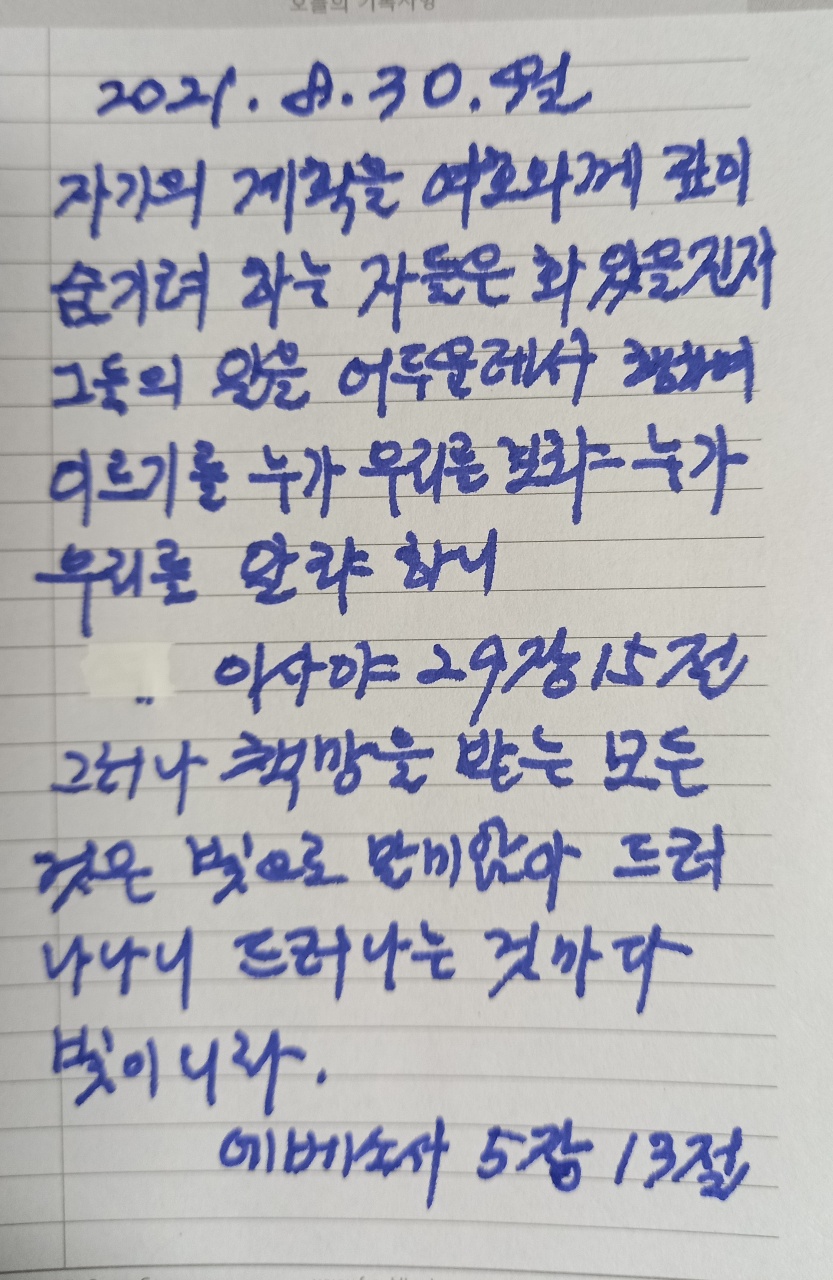 오늘의 기록사항
2021. 8. 30. 월
자기의 계획을 여호와께 깊이
숨기려 하는 자들은 화 있을진저
그들의 일을 어두운데서 행하며
이르기를 누가 우리를 보랴 누가
우리를 알랴 하니
이사야 29장 15절
그러나 책망을 받는 모든
것은 빛으로 말미암아 드러
나나니 드러나는 것마다
빛이니라.
에베소서 5장 13절